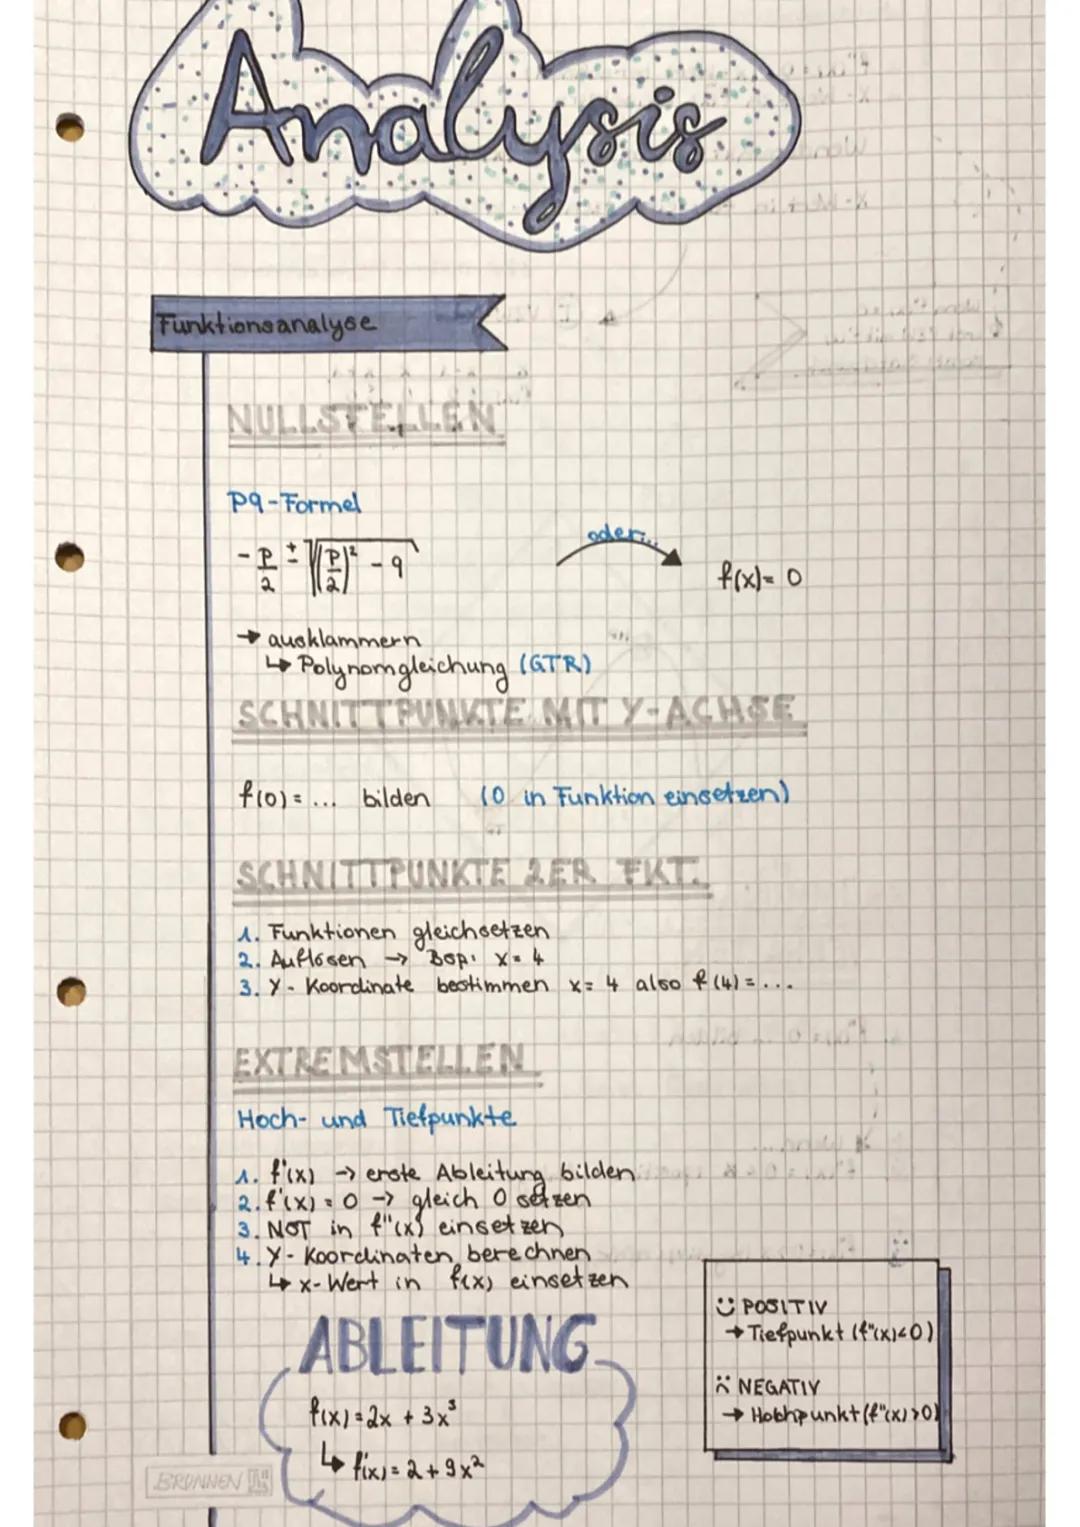 Analysis
Funktionsanalyse
NULLSTELLEN
pq-Formel
- p/2 ± √((p/2)² - q
oder...
f(x)= 0
→ ausklammern
↳ Polynomgleichung (GTR)
SCHNITTPUNKTE MIT Y-ACHSE
f(0) = ... bilden (0 in Funktion einsetzen)
SCHNITTPUNKTE 2ER FKT.
1. Funktionen gleichsetzen
2. Auflösen → Bsp: x = 4
3. Y - Koordinate bestimmen x = 4 also f(4) = ...
EXTREMSTELLEN
Hoch- und Tiefpunkte
1. f'(x) → erste Ableitung bilden
2. f'(x) = 0 → gleich 0 setzen
3. NOT in f"(x) einsetzen
4. Y - Koordinaten berechnen
↳ x-Wert in f(x) einsetzen
POSITIV
→ Tiefpunkt (f"(x)<0)
NEGATIV
→ Hohhpunkt (f"(x)>0)
ABLEITUNG
f(x) = 2x + 3x³
↳ f'(x) = 2 + 9x²
BRUNNEN